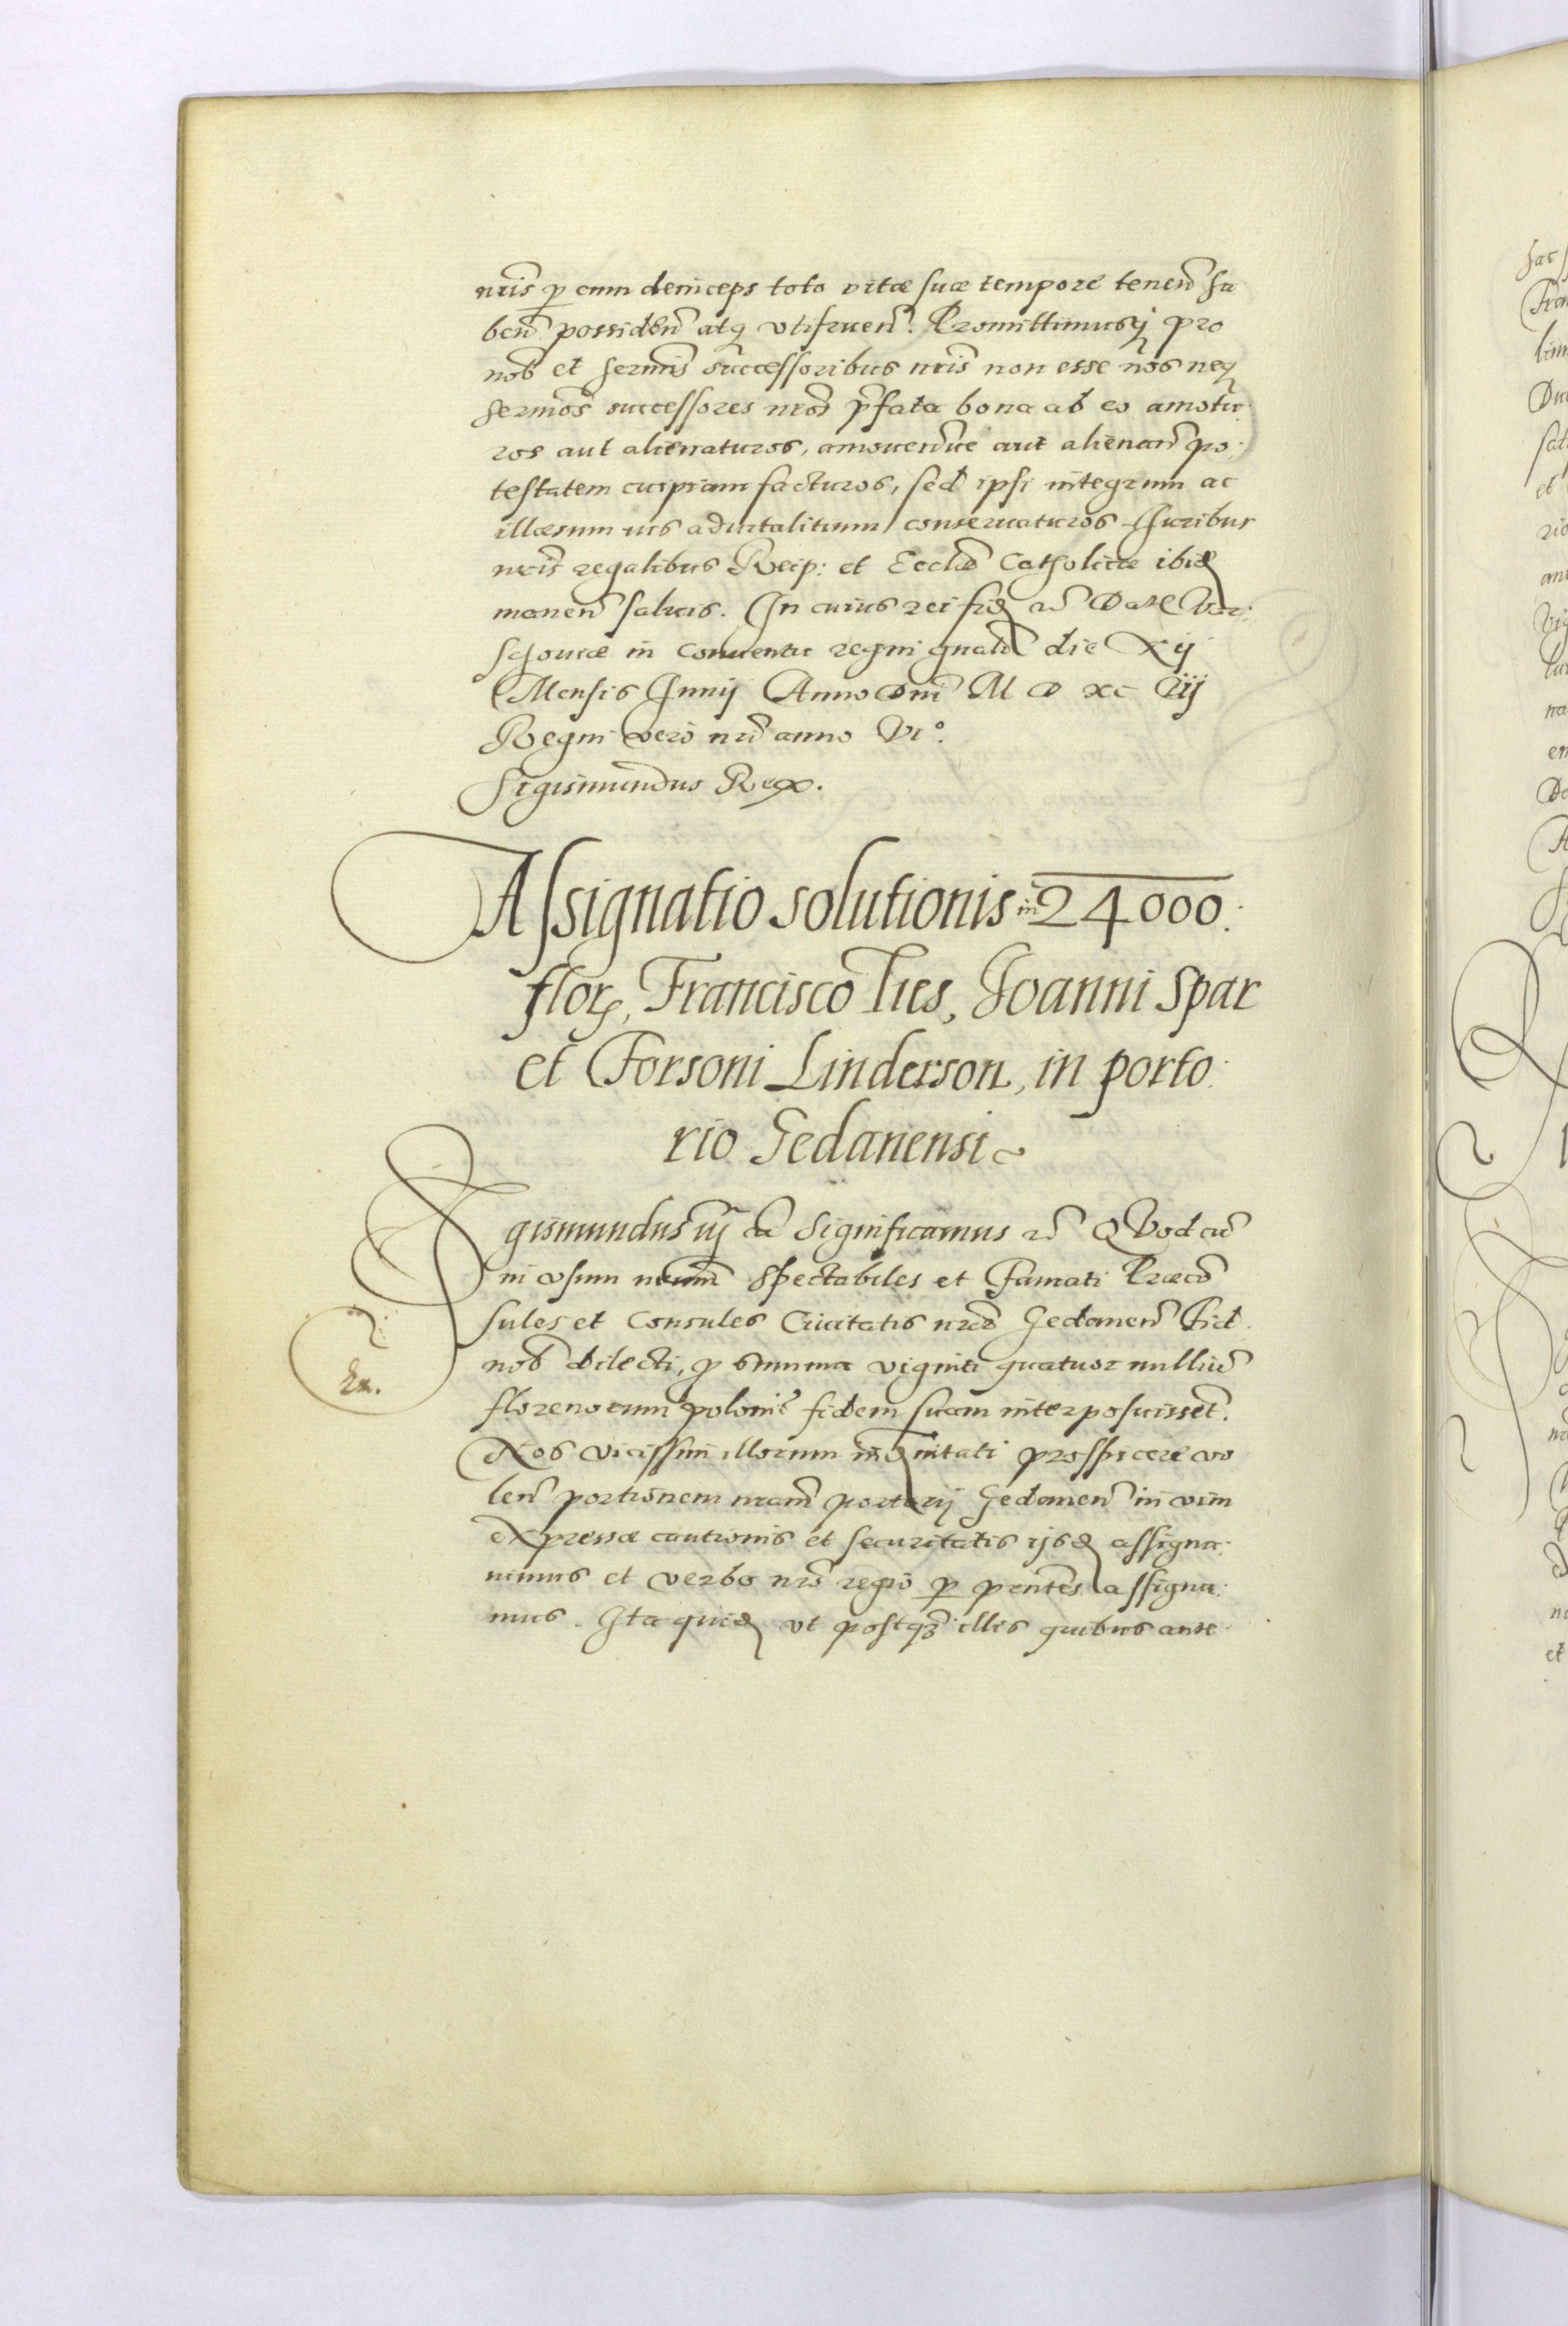 nris p eum deinceps toto vitæ suæ tempore tenen ha
ben possiden atq vtifruen. Promittimusq pro
nob et sermis successoribus nris non esse nos neq
sermos successores nros pfata bona ab eo amotu
ros aut alienaturos, amouendive aut alienandi po:
testatem cuipiam facturos, sed ipsi integrum ac
illæsum ius aduitalitium conseruaturos Juribus
nris regalibus Reip: et Eccliæ Catholicæ ibid
manen saluis. In cuius rei fid Dat Var:
schouiæ in conuentu regni gnali die Xij
Mensis Junij Anno Dni M D xc iij
Regni vero nri anno VI°.
Sigismundus Rex.
Assignatio solutionis in 24000.
flor, Francisco Ties, Joanni Spar
et Torsoni Linderson, in porto:
rio Gedanensi
Sigismundus iij Significamus QVod cu
in vsum nrum Spectabiles et Famati Præco
sules et Consules Ciuitatis nræ Gedanen Fid.
nob dilecti, p summa viginti quatuor milliu
florenorum poloni fidem suam interposuisset.
Nos vicissim illorum indnitati prospicere vo
len portionem nram portorij Gedanen in vim
expressæ cautionis et securitatis ijsd assigna:
uimus et verbo nro regio p pntes assigna:
mus. Ita quid vt postq illis quibus ante
Ex.